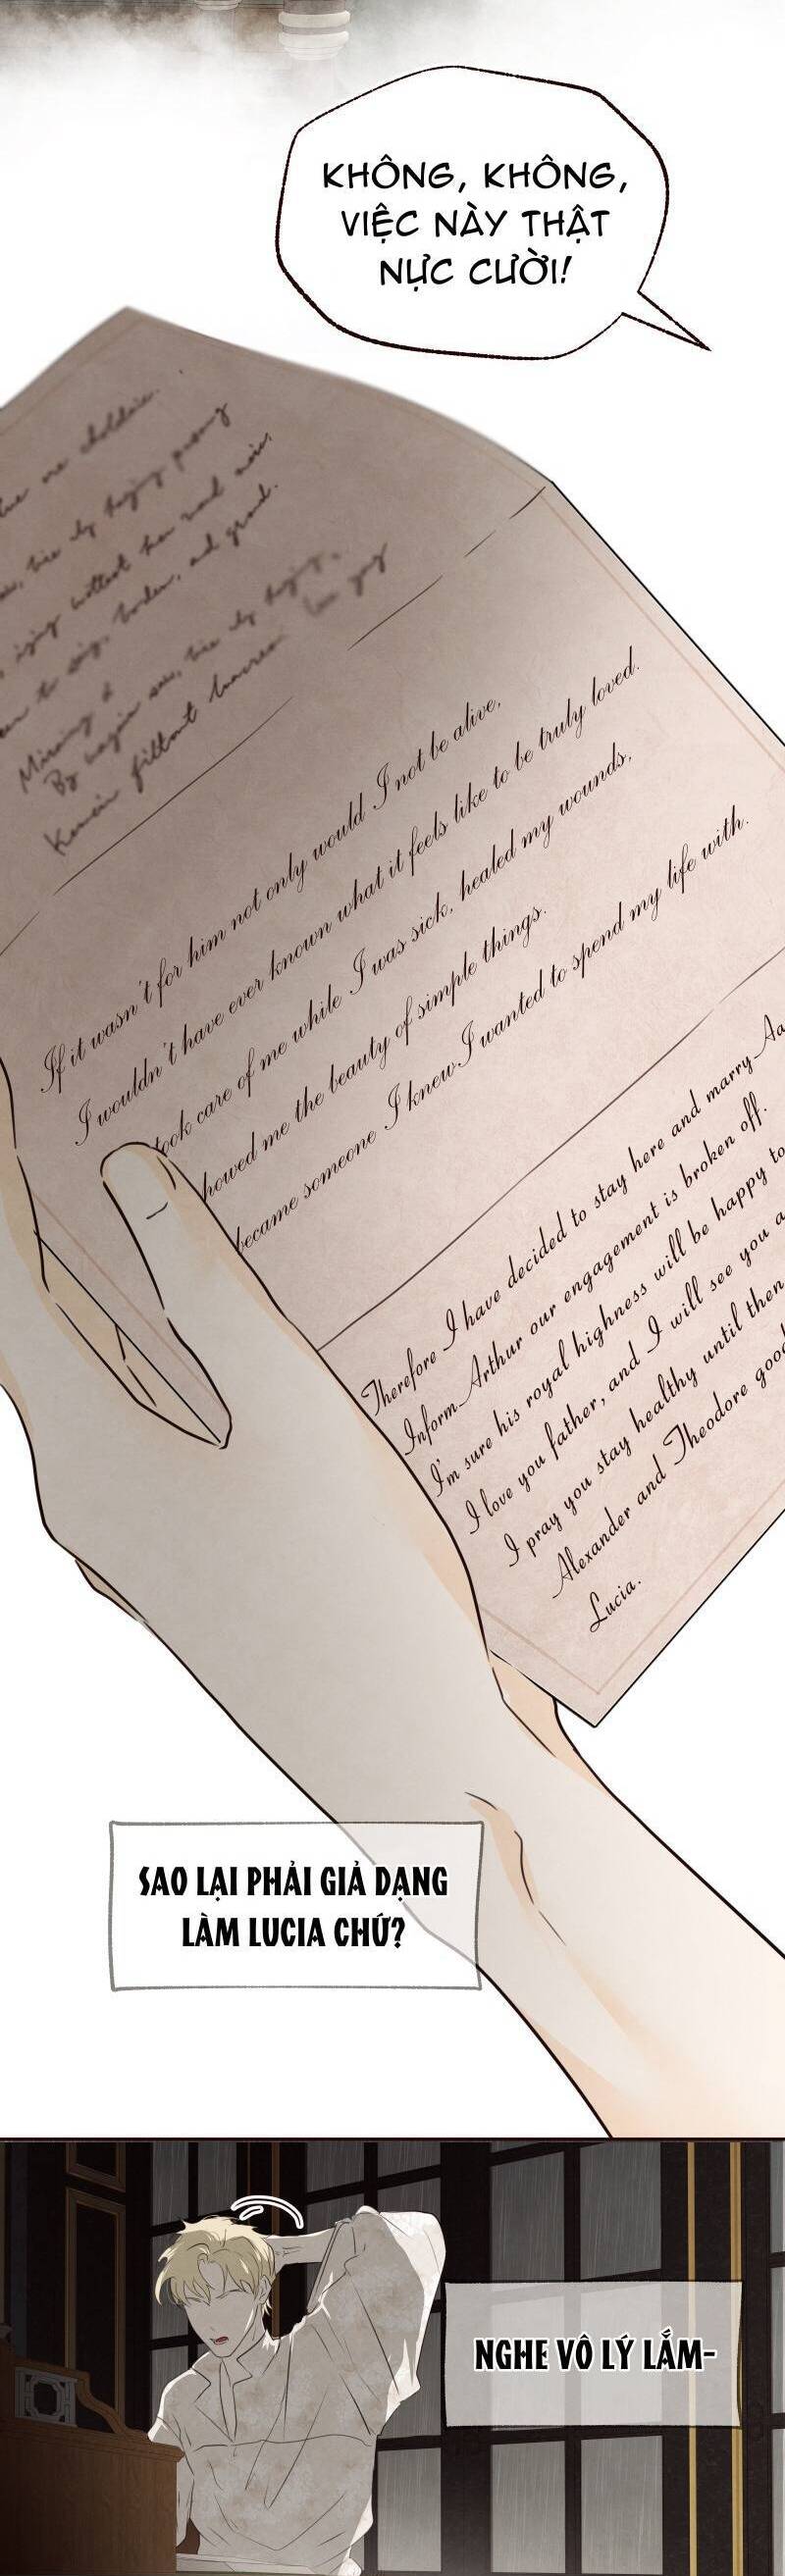 KHÔNG, KHÔNG,
VIỆC NÀY THẬT
NỰC CƯỜI!
If it wasn't for him not only would I not be alive,
I wouldn't have ever known what it feels like to be truly loved.
took care of me while I was sick, healed my wounds,
howed me the beauty of simple things.
became someone I knew I wanted to spend my life with.
Therefore I have decided to stay here and marry Aa
Inform Arthur our engagement is broken off.
I'm sure his royal highness will be happy to
I love you father, and I will see you a
I pray you stay healthy until then
Alexander and Theodore good
Lucia.
SAO LẠI PHẢI GIẢ DẠNG
LÀM LUCIA CHỨ?
NGHE VÔ LÝ LẮM-